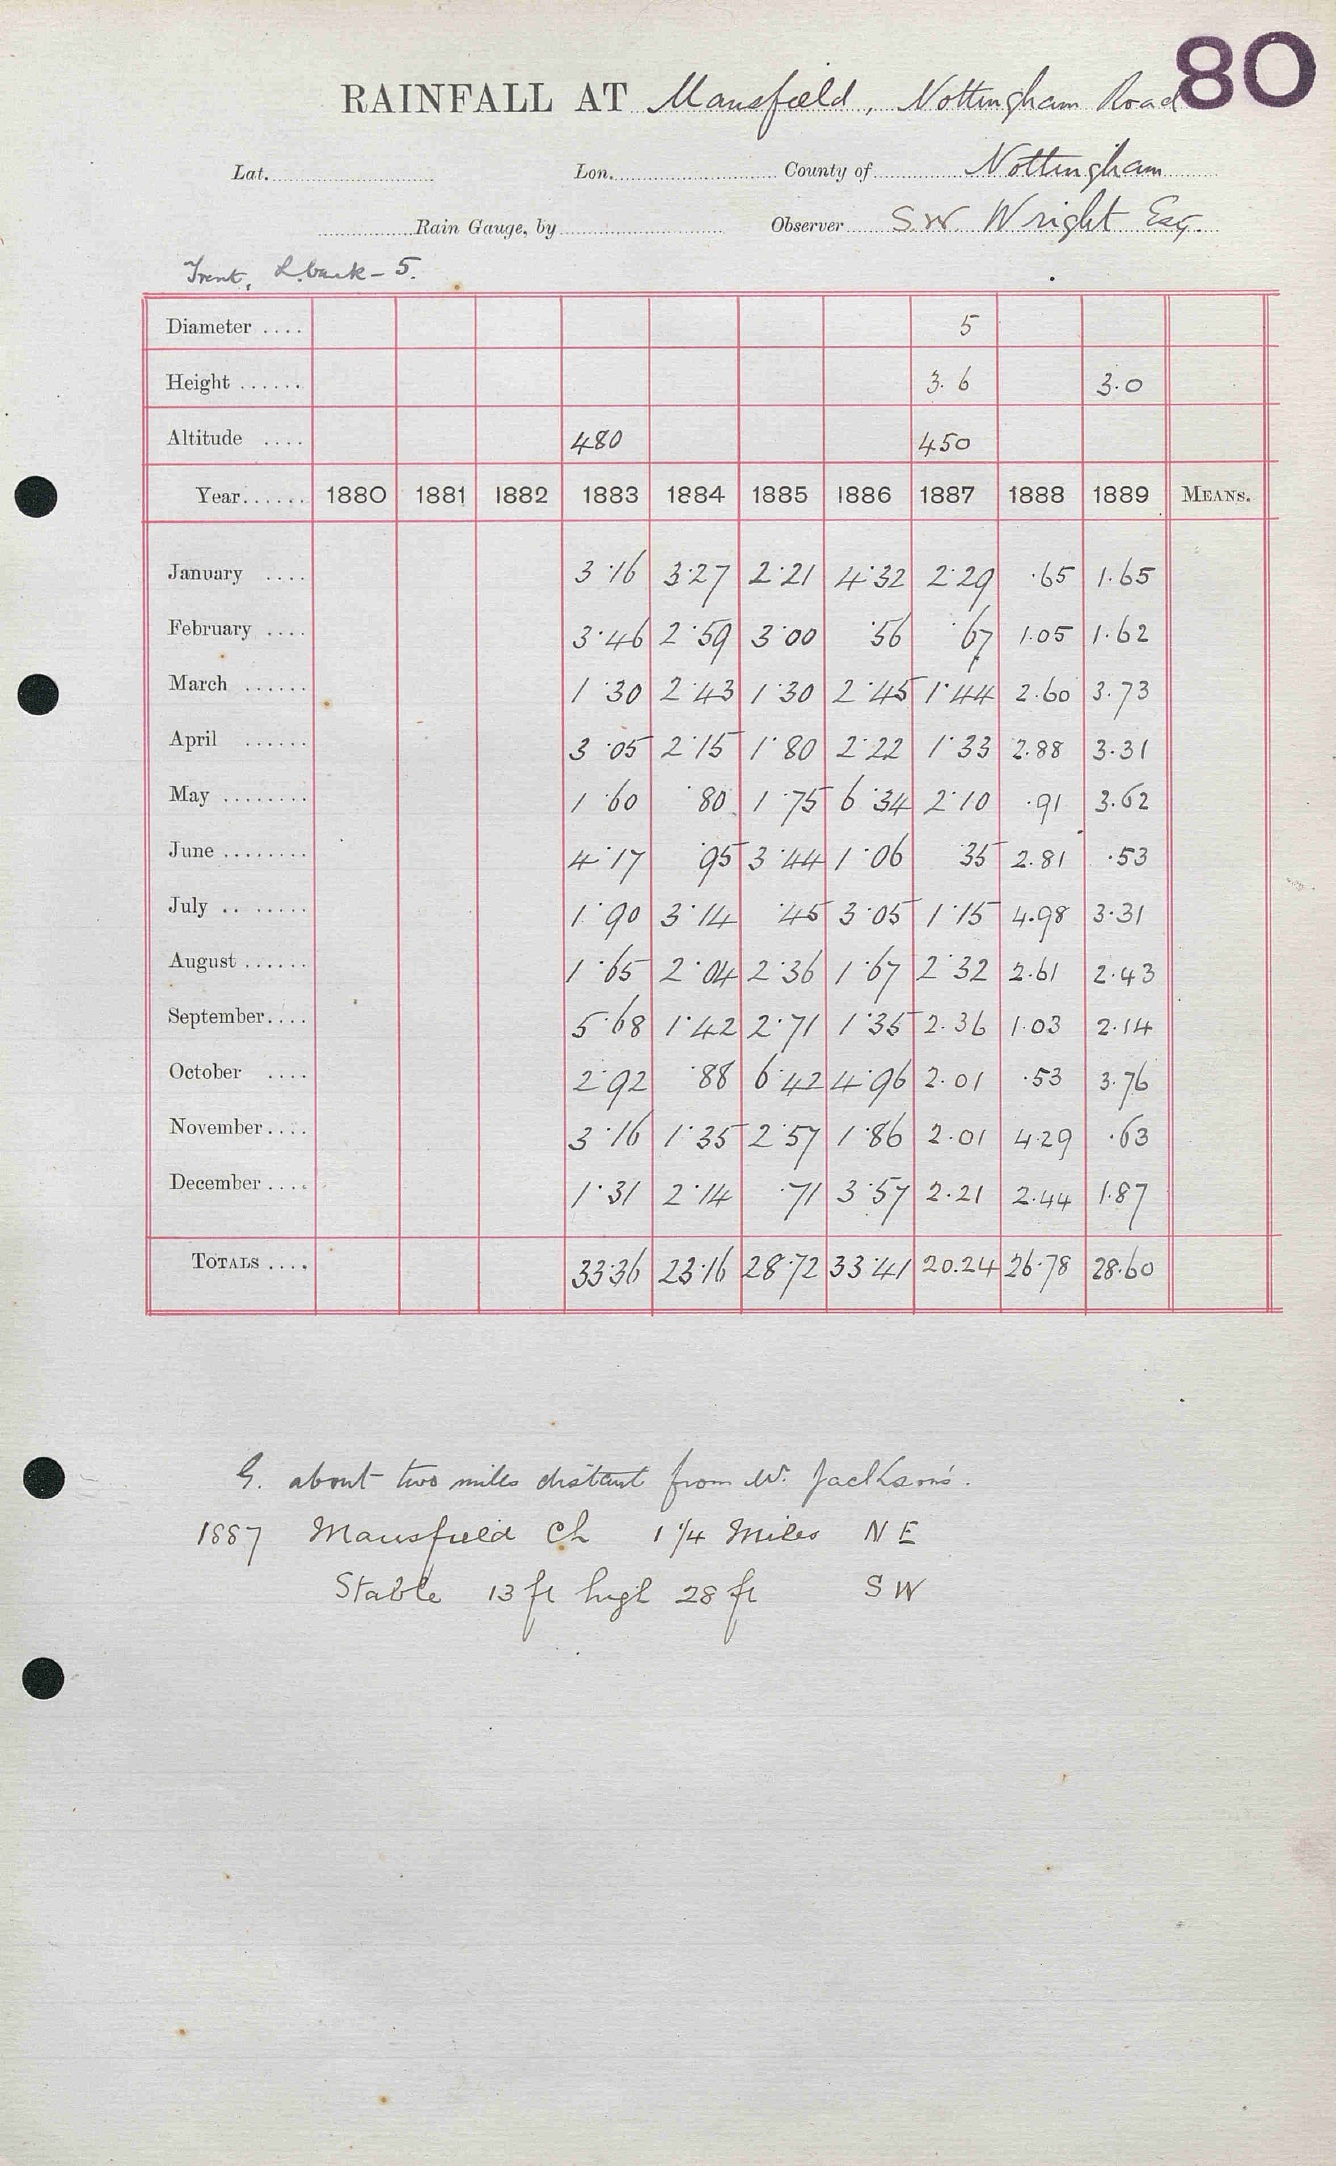 80
RAINFALL AT Mansfield, Nottingham Road
Lat. Lon. County of Nottingham
Rain Gauge, by Observer S.W. Wright Esq.
Trent, L. bank - 5.
Diameter .... 5
Height ...... 3.6 3.0
Altitude .... 480 450
Year...... 1880 1881 1882 1883 1884 1885 1886 1887 1888 1889 MEANS.
January .... 3.16 3.27 2.21 4.32 2.29 .65 1.65
February .... 3.46 2.59 3.00 .56 .67 1.05 1.62
March ...... 1.30 2.43 1.30 2.45 1.44 2.60 3.73
April ...... 3.05 2.15 1.80 2.22 1.33 2.88 3.31
May ........ 1.60 .80 1.75 6.34 2.10 .91 3.62
June ........ 4.17 .95 3.44 1.06 35 2.81 .53
July .. ...... 1.90 3.14 .45 3.05 1.15 4.98 3.31
August ...... 1.65 2.04 2.36 1.67 2.32 2.61 2.43
September.... 5.68 1.42 2.71 1.35 2.36 1.03 2.14
October .... 2.92 .88 6.42 4.96 2.01 .53 3.76
November.... 3.16 1.35 2.57 1.86 2.01 4.29 .63
December .... 1.31 2.14 .71 3.57 2.21 2.44 1.87
TOTALS .... 33.36 23.16 28.72 33.41 20.24 26.78 28.60
G. about two miles distant from Mr. Jackson's.
1887 Mansfield Ch 1 1/4 Miles N E
Stable 13 ft high 28 ft S W